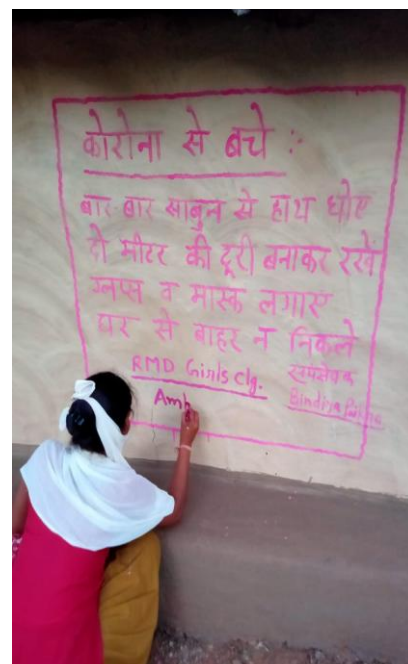 कोरोना से बचे :-
बार-बार साबुन से हाथ धोए
दो मीटर की दूरी बनाकर रखें
ग्लप्स व मास्क लगाए
घर से बाहर न निकले
RMD Girls Clg.
Amb
Bindiya